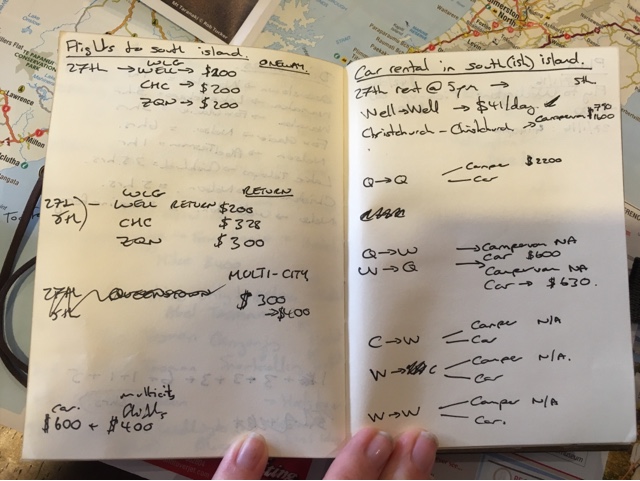 Flights to south island.
WLG ONEWAY.
27th → WELL → $200
CHC → $200
ZQN → $200
WLG RETURN
27th) - WELL RETURN $200
5th) CHC $328
ZQN $300
MULTI-CITY
27th QUEENSTOWN $300
5th → $400
car. multicity
$600 + $400
Car rental in south(ish) island.
27th rent @ 5pm → 5th.
Well → Well → $41/day.
Christchurch - Christchurch → $1600
Q → Q Camper $2200
Car
Q → W → Campervan NA
Car $600
W → Q → Campervan NA
Car → $630.
C → W Camper N/A
Car
W → C Camper N/A.
Car
W → W Camper N/A
Car.
Lawrence